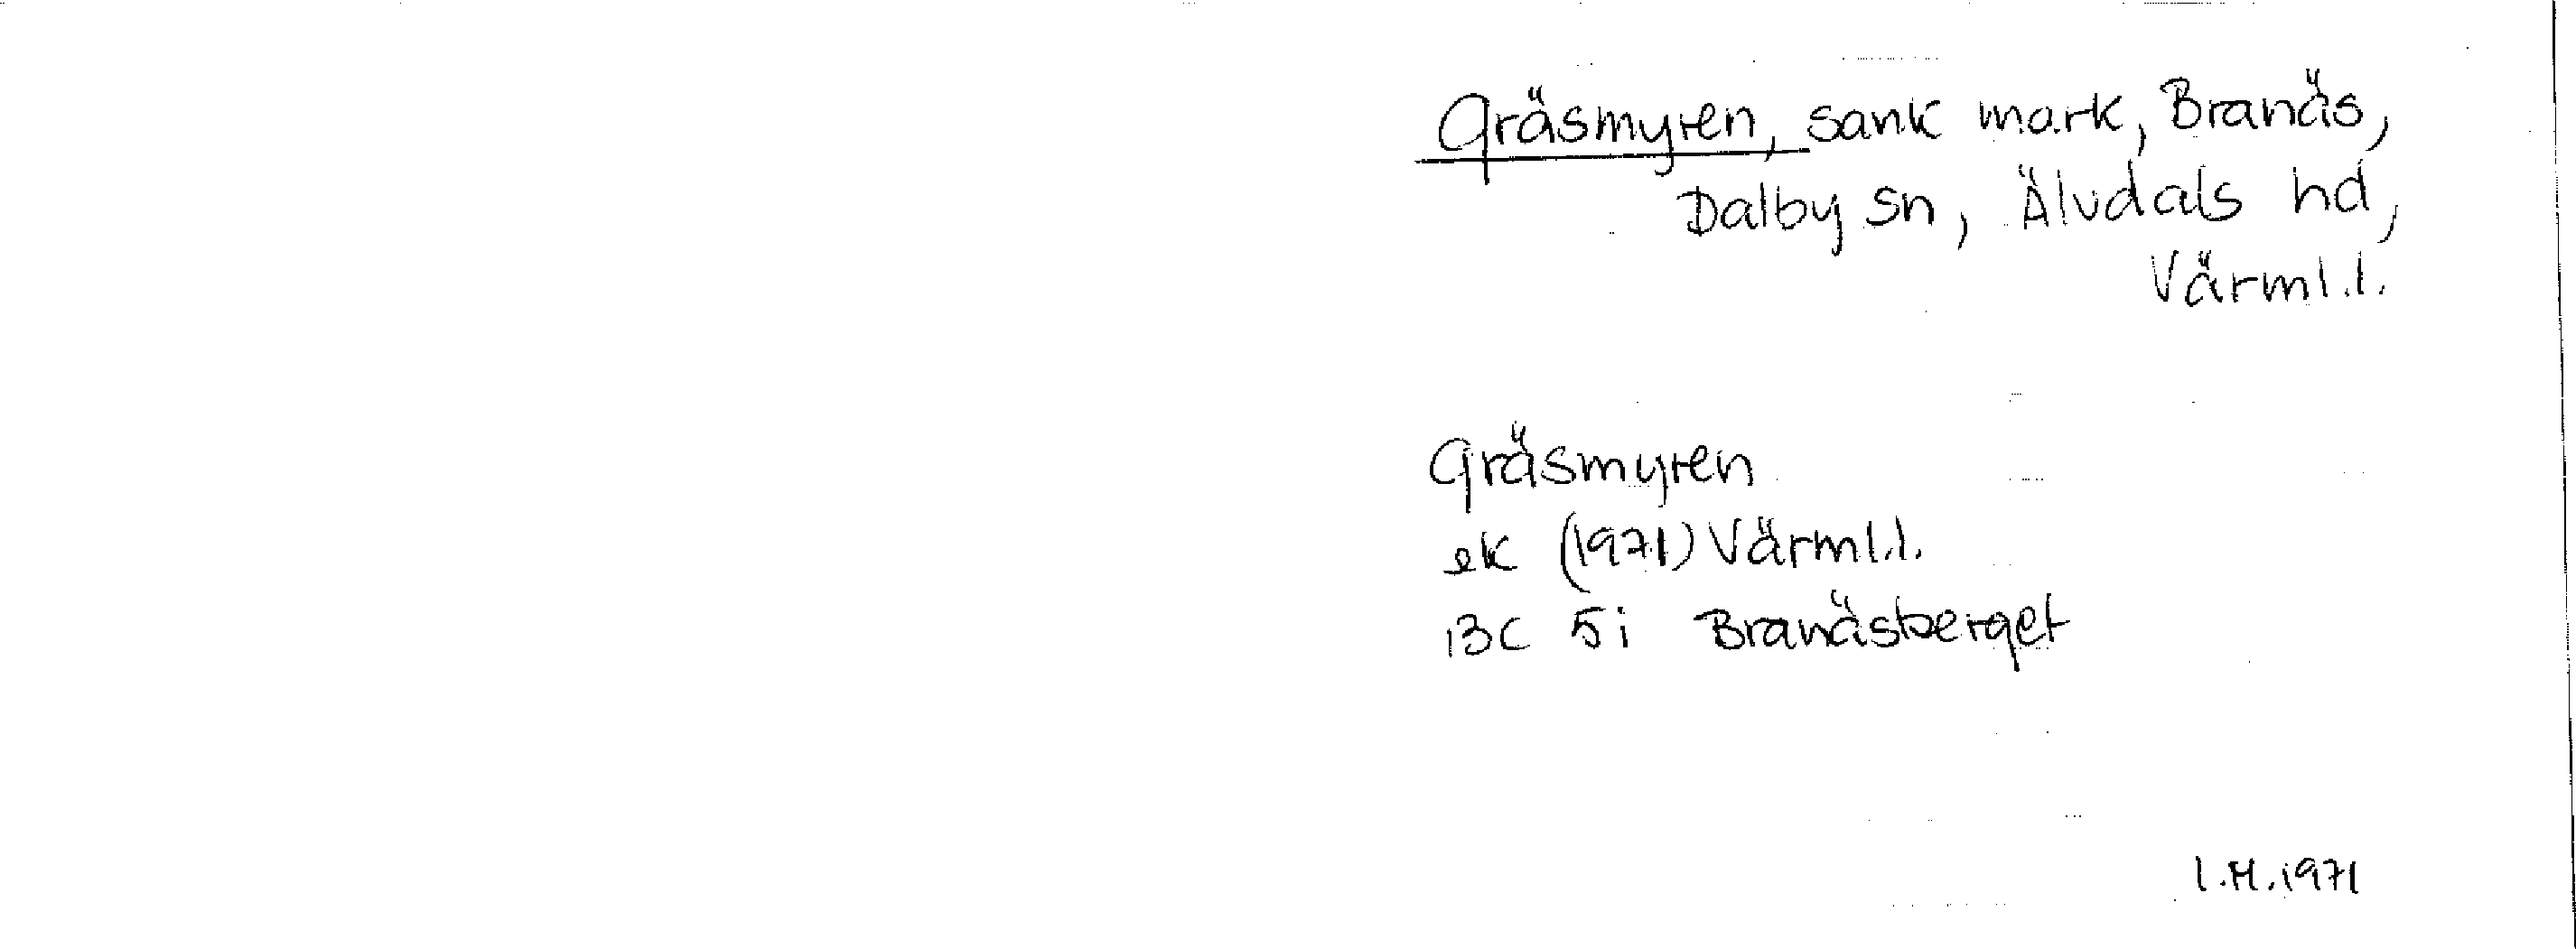 Gräsmyren, sank mark, Branäs,
Dalby sn, Älvdals hd,
Värml.l.
Gräsmyren
ek (1971) Värml.l.
13C 5i Branäsberget
I.H.1971